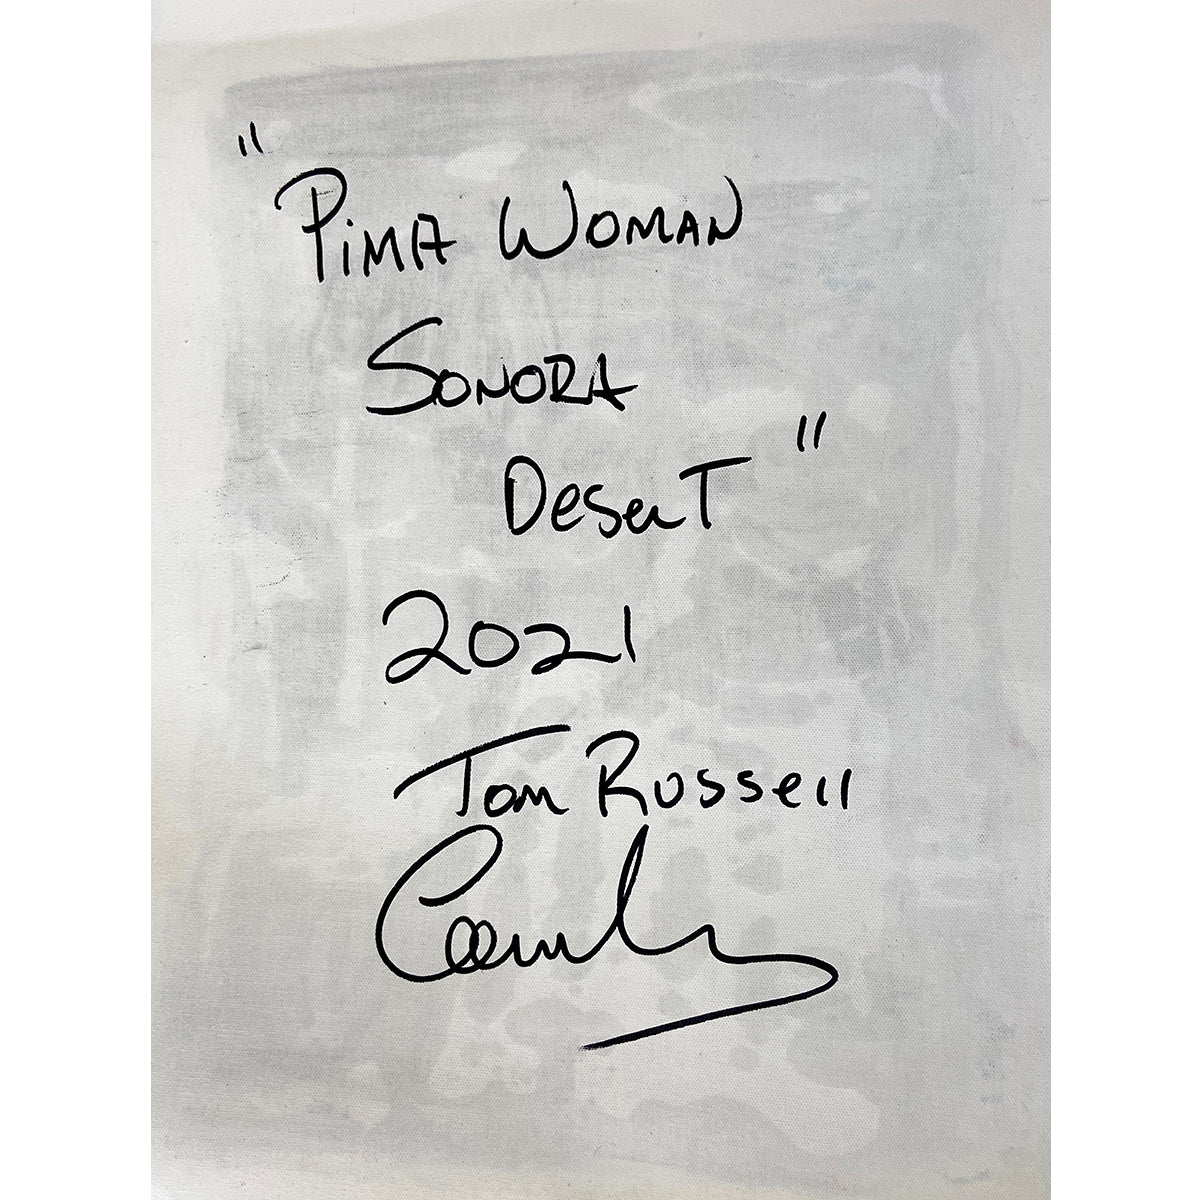 "PiMA WOMAN
SONORA
DeserT"
2021
Tom Russell